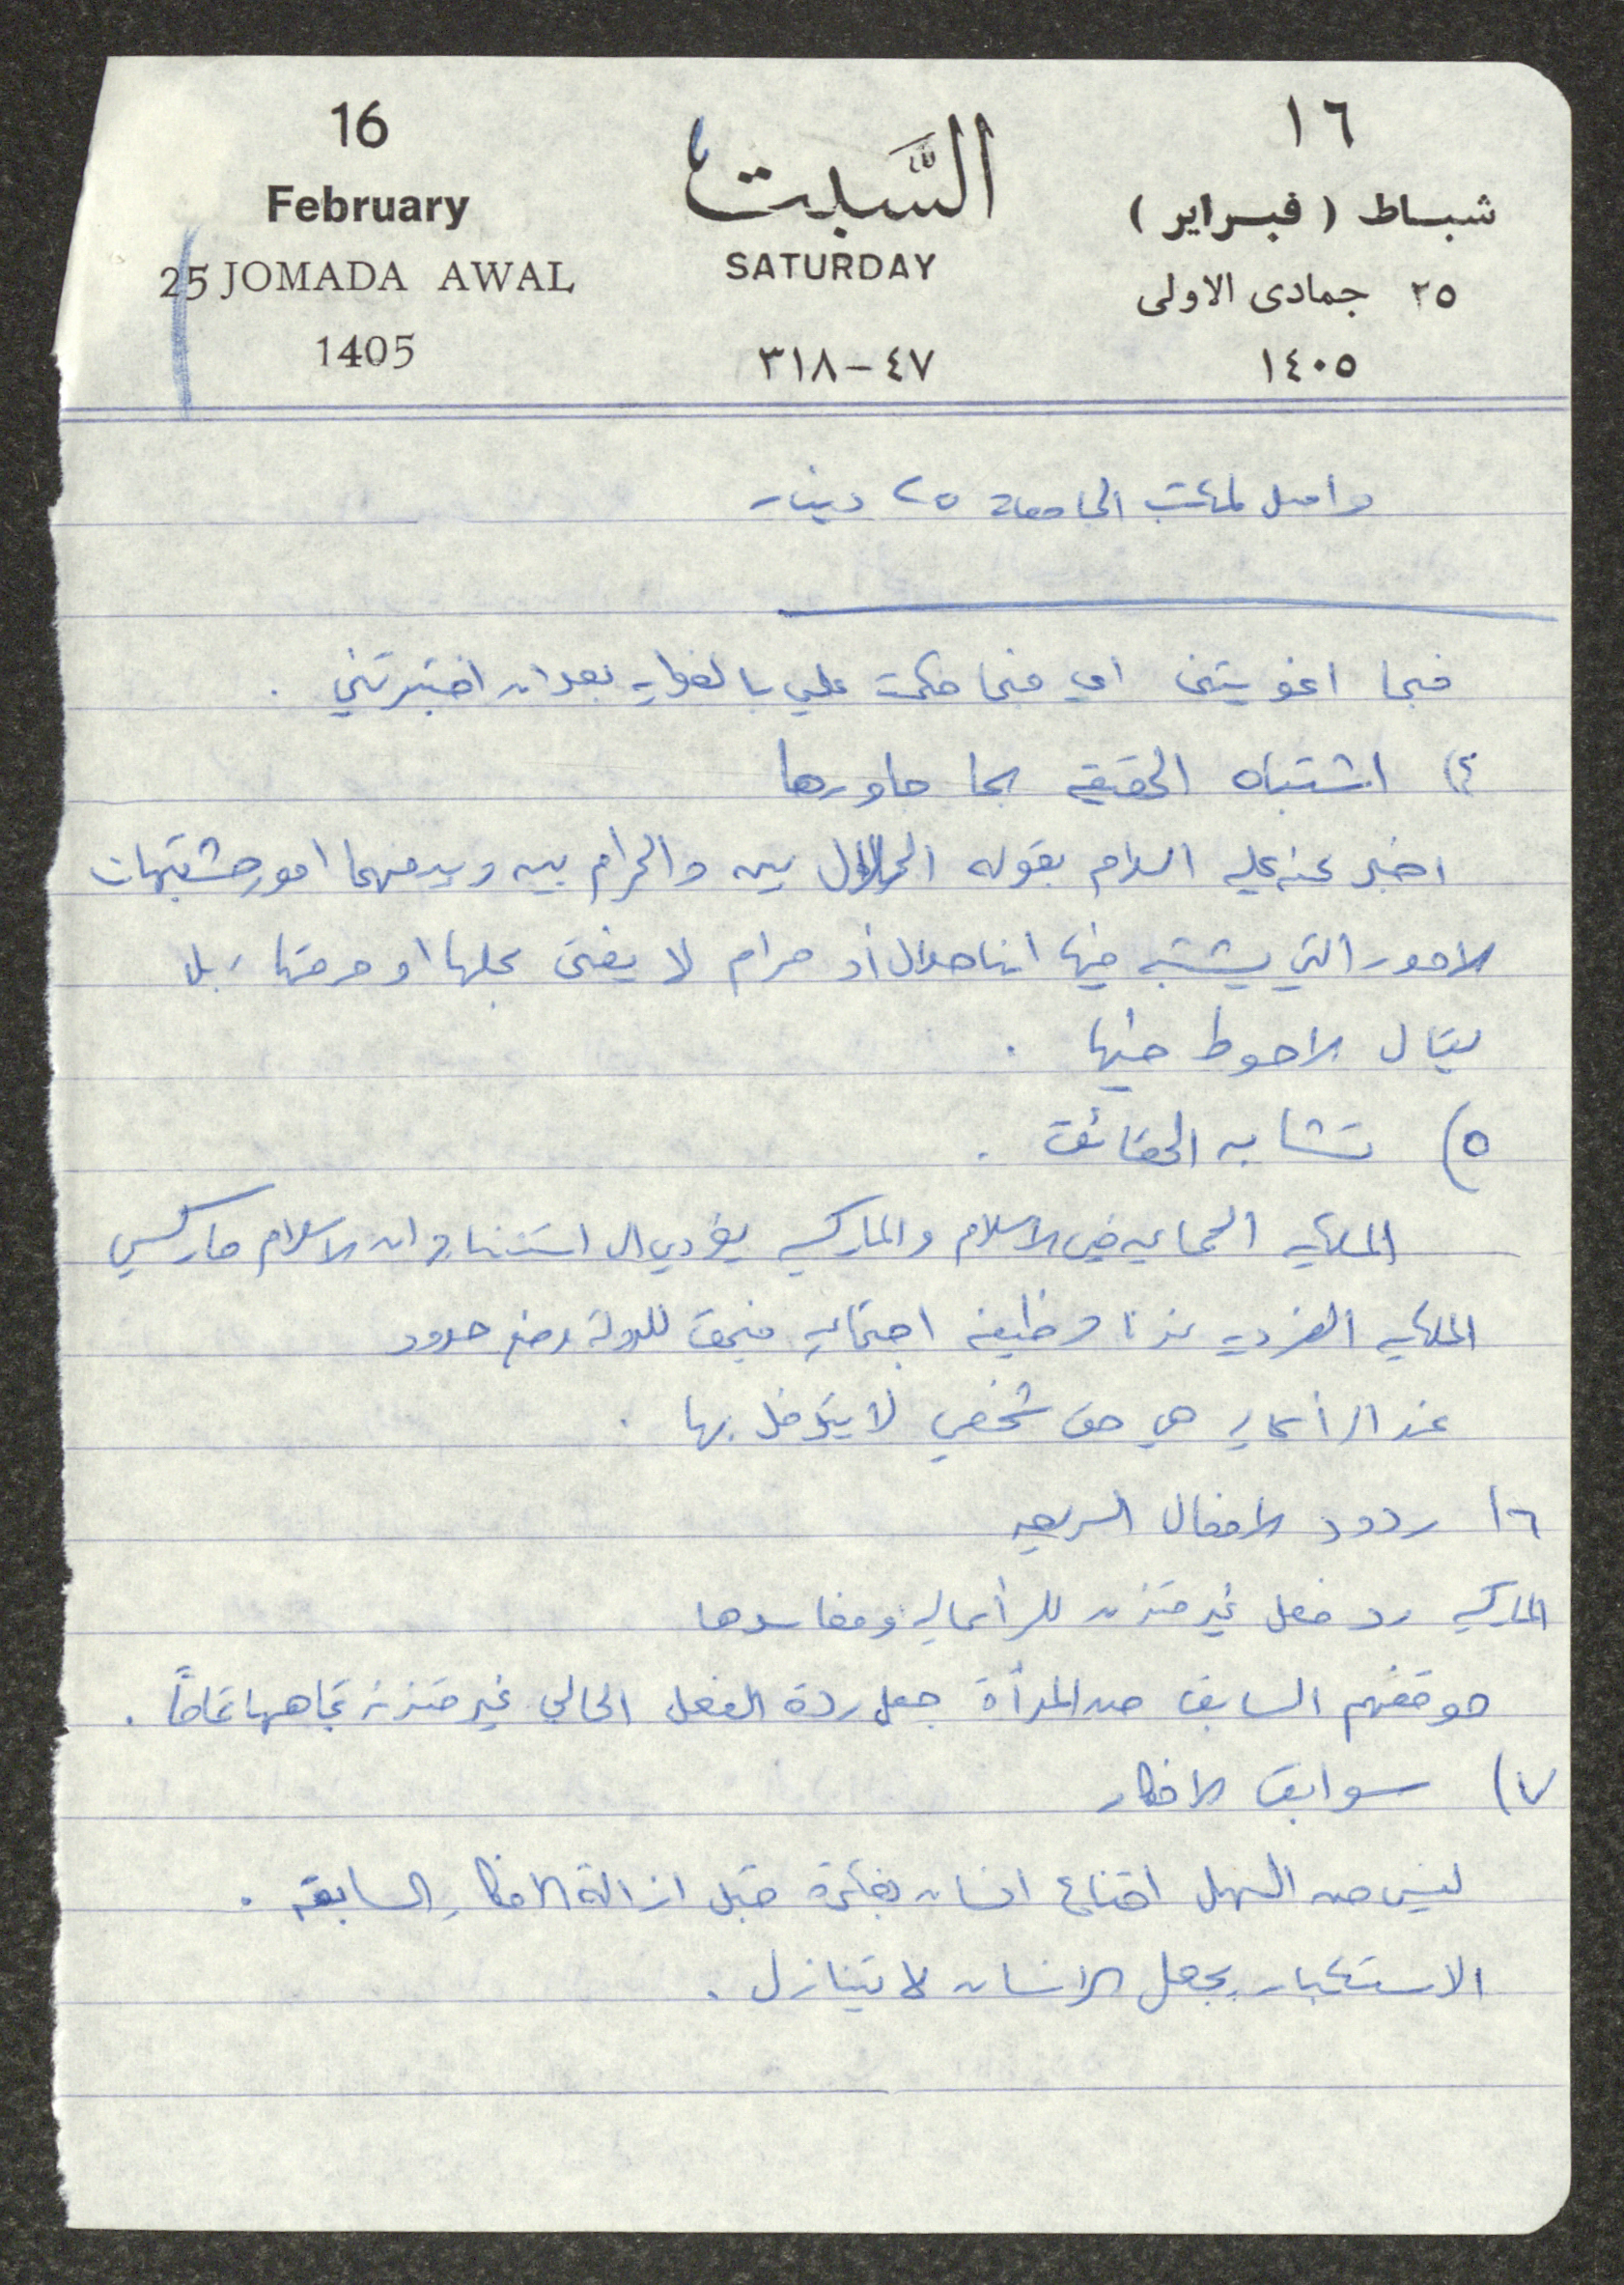 16
February
25 JOMADA AWAL
1405
السَّبت
SATURDAY
٤٧ – ٣١٨
١٦
شباط ( فبراير )
٢٥ جمادى الاولى
١٤٠٥
واصل لمكتب الجامعة ٢٥ دينار
فبما اغويتني اي فبما حكمت علي بالغوايه بعد ان اختبرتني .
٤) اشتباه الحقيقه بما جاورها
اخبر عنه عليه السلام بقوله الحلال بين والحرام بين وبينهما امور مشتبهات
الامور التي يشتبه فيها انها حلال أو حرام لا يفتى بحلها او حرمتها ، بل
يقال الاحوط فيها .
٥) تشابه الحقائق .
الملكيه الجماعيه في الاسلام والماركسيه يؤدي الى استنتاج ان الاسلام ماركسي
الملكيه الفرديه عندنا وظيفه اجتماعيه فيحق للدولة وضع حدود
عند الرأسماليه هي حق شخصي لا يتدخل بها .
٦) ردود الافعال السريعه
الماركسيه رد فعل غير متزن للرأسماليه ومفاسدها
موقفهم السابق من المرأة جعل ردة الفعل الحالي غير متزنة تجاهها تماماً .
٧) سوابق الافكار
ليس من السهل اقناع انسان بفكرة قبل ازالة الافكار السابقه .
الاستكبار يجعل الانسان لا يتنازل .